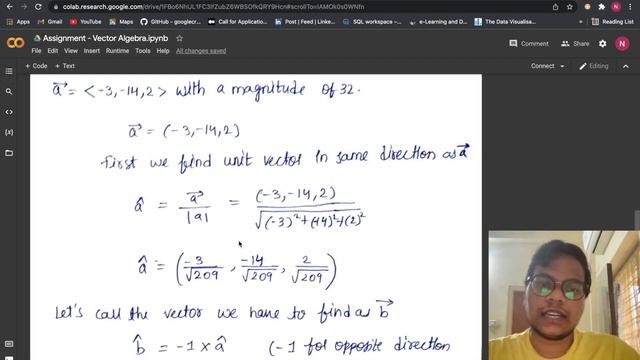 colab.research.google.com/drive/1FBo6NhUL1FC3IfZubZ6WBSOfkQRY9Hcn#scrollTo=iAMOk0s0WNfn
YouTube
Maps
GitHub - googlecr...
Call for Application...
Post | Feed | Linke...
SQL workspace -...
e-Learning and D...
The Data Visualisa...
Assignment - Vector Algebra.ipynb
File Edit View Insert Runtime Tools Help All changes saved
+ Code + Text
Connect
Editing
a = < -3, -14, 2 > with a magnitude of 32.
a = (-3, -14, 2)
First we find unit vector in same direction as a
â = a / |a| = (-3, -14, 2) / √(-3)² + (-14)² + (2)²
â = (-3/√209, -14/√209, 2/√209)
Let's call the vector we have to find as b
b̂ = -1 × â (-1 for opposite direction